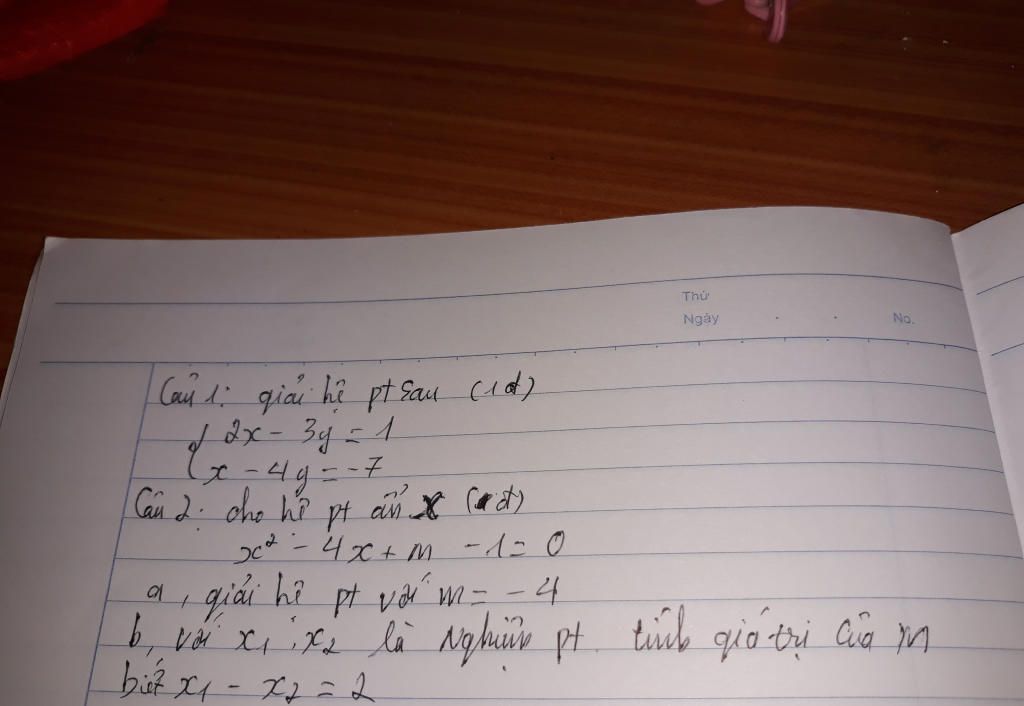 Thứ
Ngày . . No.
Câu 1: giải hệ pt sau (1đ)
2x - 3y = 1
x - 4y = -7
Câu 2: cho hệ pt ẩn x (đ)
x² - 4x + m - 1 = 0
a, giải hệ pt với m = -4
b, với x₁ ; x₂ là nghiệm pt. tính giá trị của m
biết x₁ - x₂ = 2